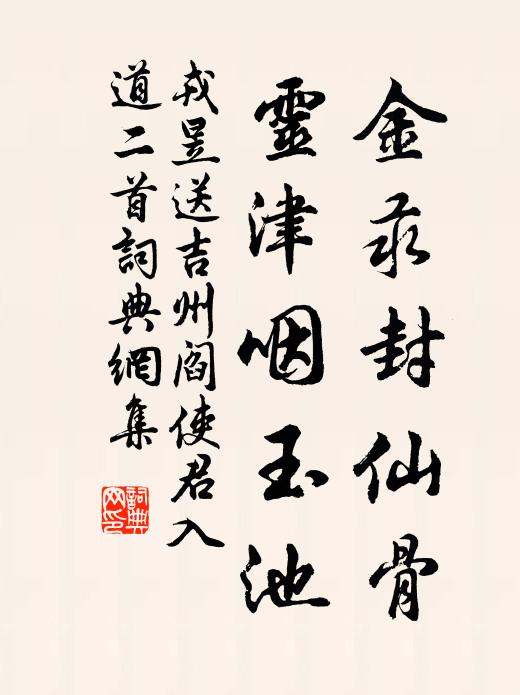 金汞封仙骨
靈津咽玉池
戎昱送吉州閻使君入
道二首詞典網集
詞典
网印